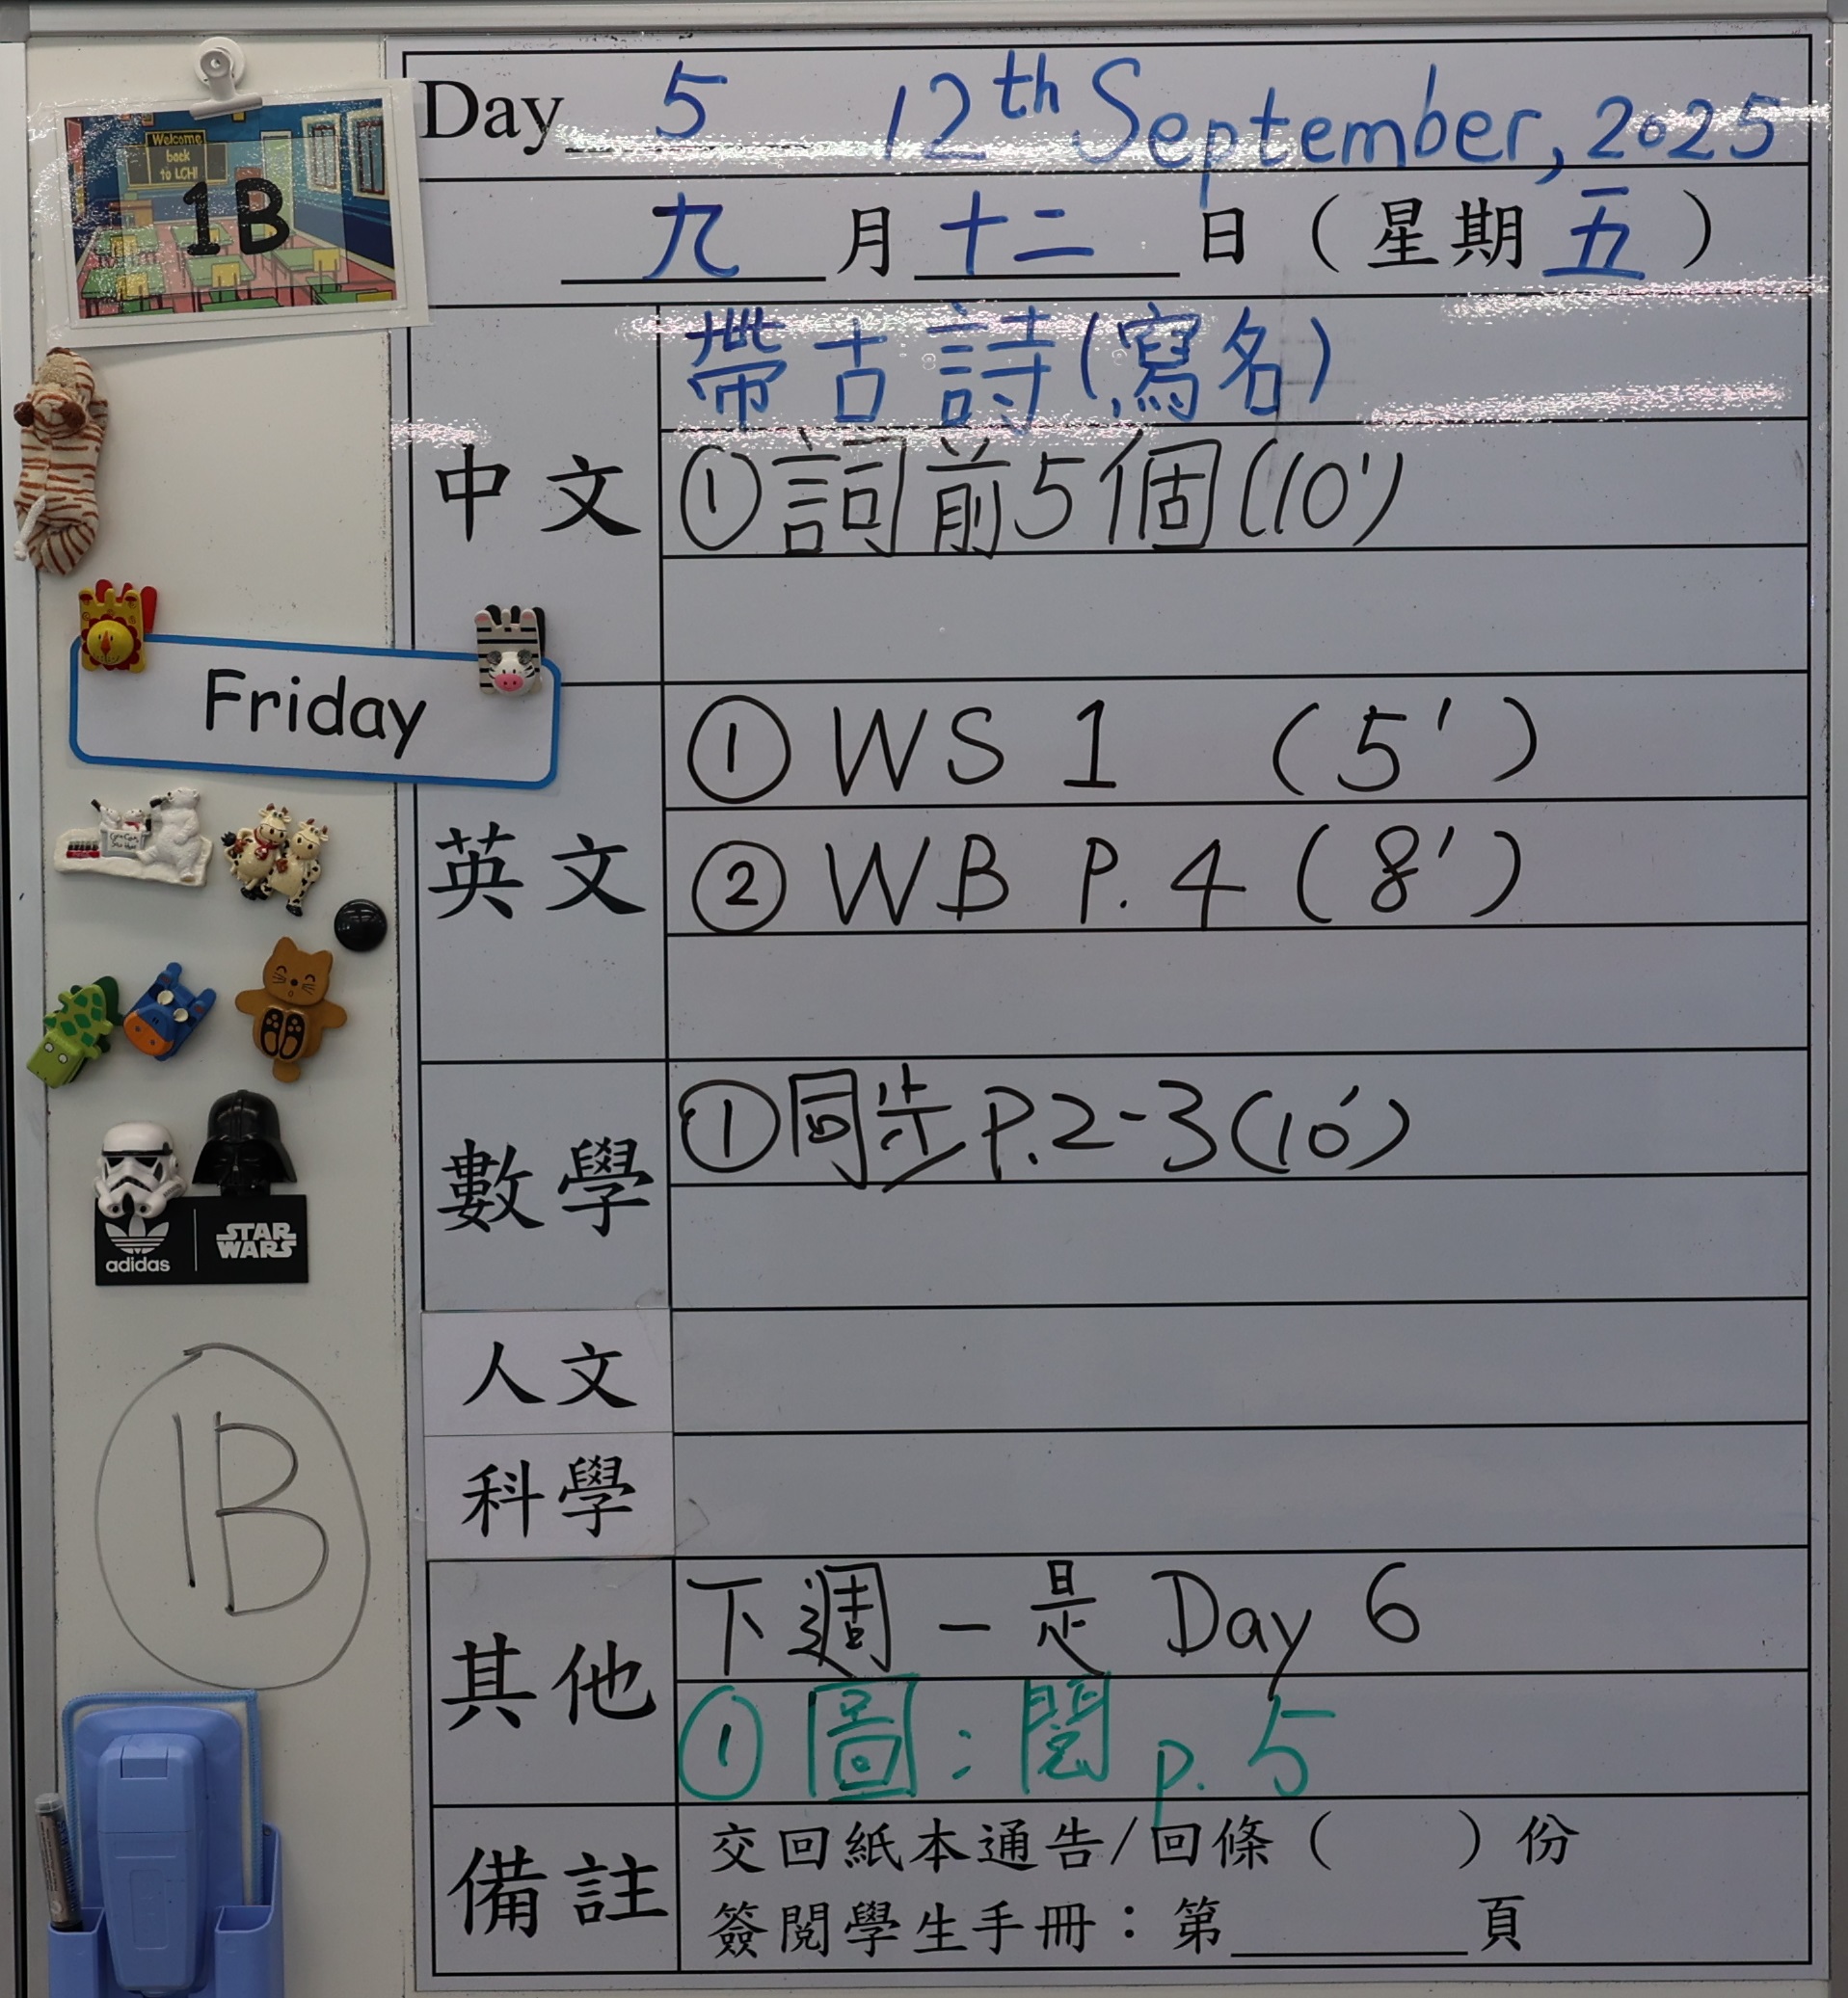 Day 5 12th September, 2025
Welcome
back
to LCH!
1B
九月十二日（星期五）
中文
帶古詩(寫名)
①詞前5個(10')
Friday
英文
① WS 1 (5')
② WB P.4 (8')
數學
①同步P.2-3(10')
adidas
STAR
WARS
人文
科學
1B
其他
下週一是 Day 6
①圖:閱 p.5
備註
交回紙本通告/回條（ ）份
簽閱學生手冊：第______頁